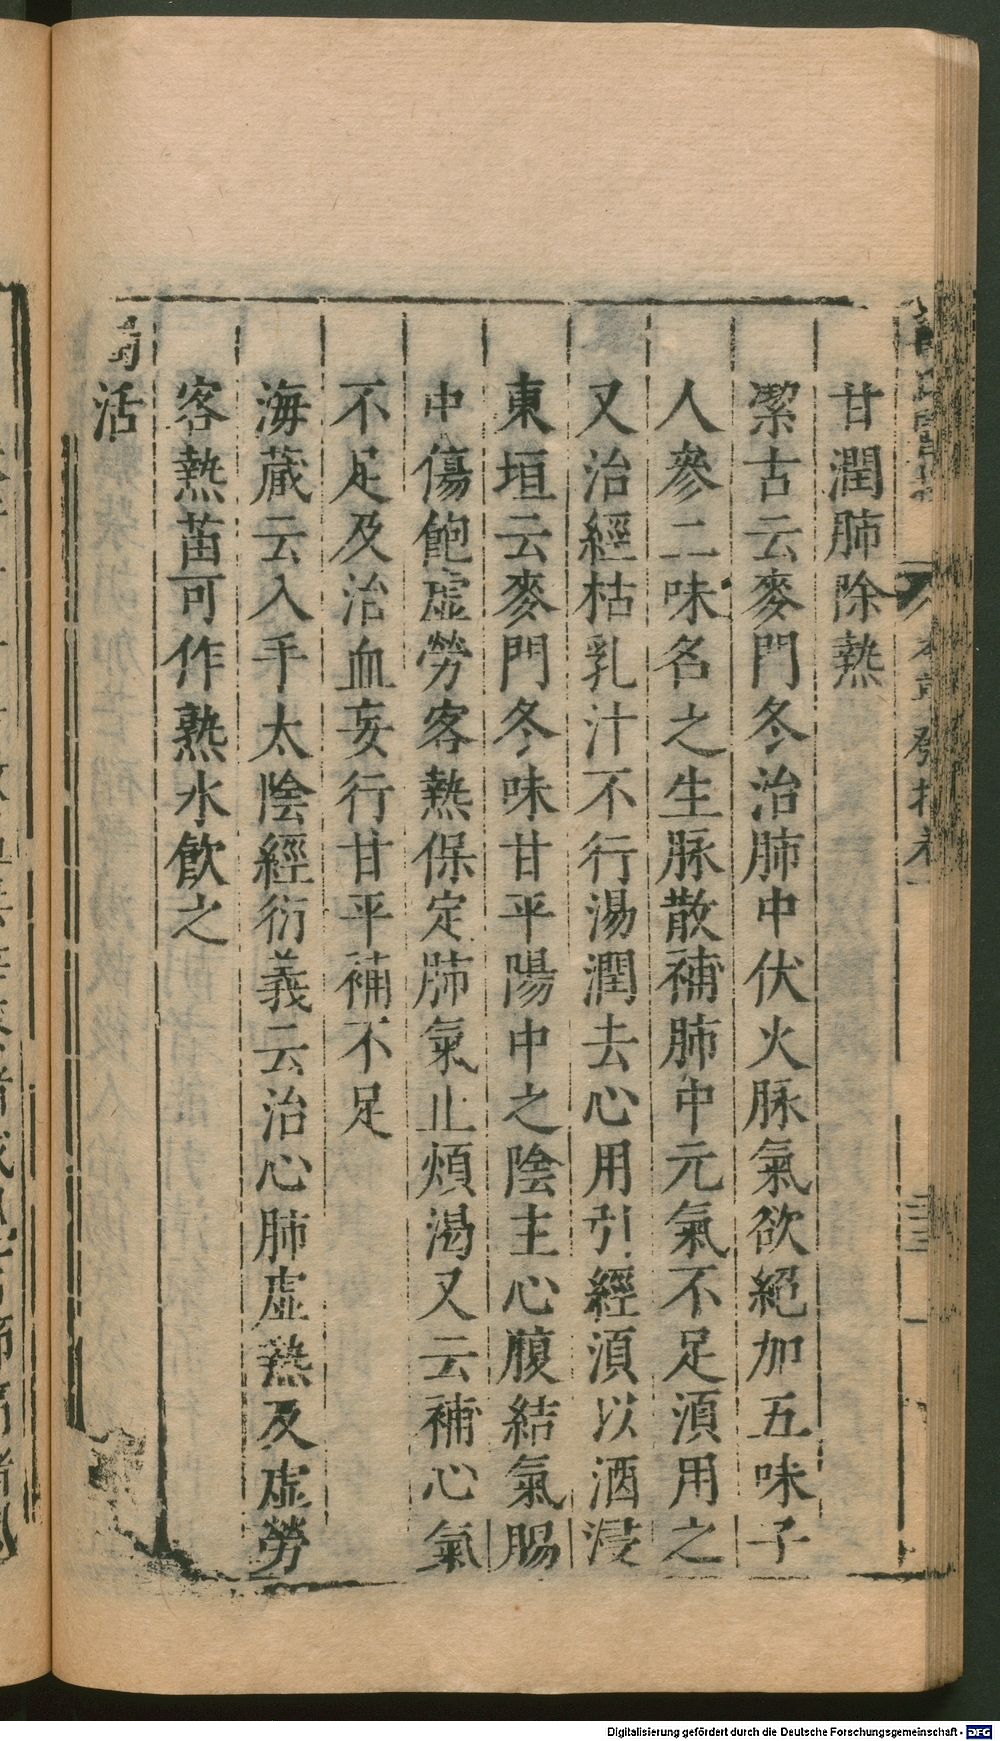 甘潤肺除熱
潔古云麥門冬治肺中伏火脉氣欲絕加五味子
人參二味名之生脉散補肺中元氣不足湏用之
又治經枯乳汁不行湯潤去心用引經湏以酒浸
東垣云麥門冬味甘平陽中之陰主心腹結氣腸
中傷飽虛勞客熱保定肺氣止煩渴又云補心氣
不足及治血妄行甘平補不足
海蔵云入手太陰經衍義云治心肺虛熱及虛勞
客熱苗可作熟水飲之
活
Digitalisierung gefördert durch die Deutsche Forschungsgemeinschaft - DFG